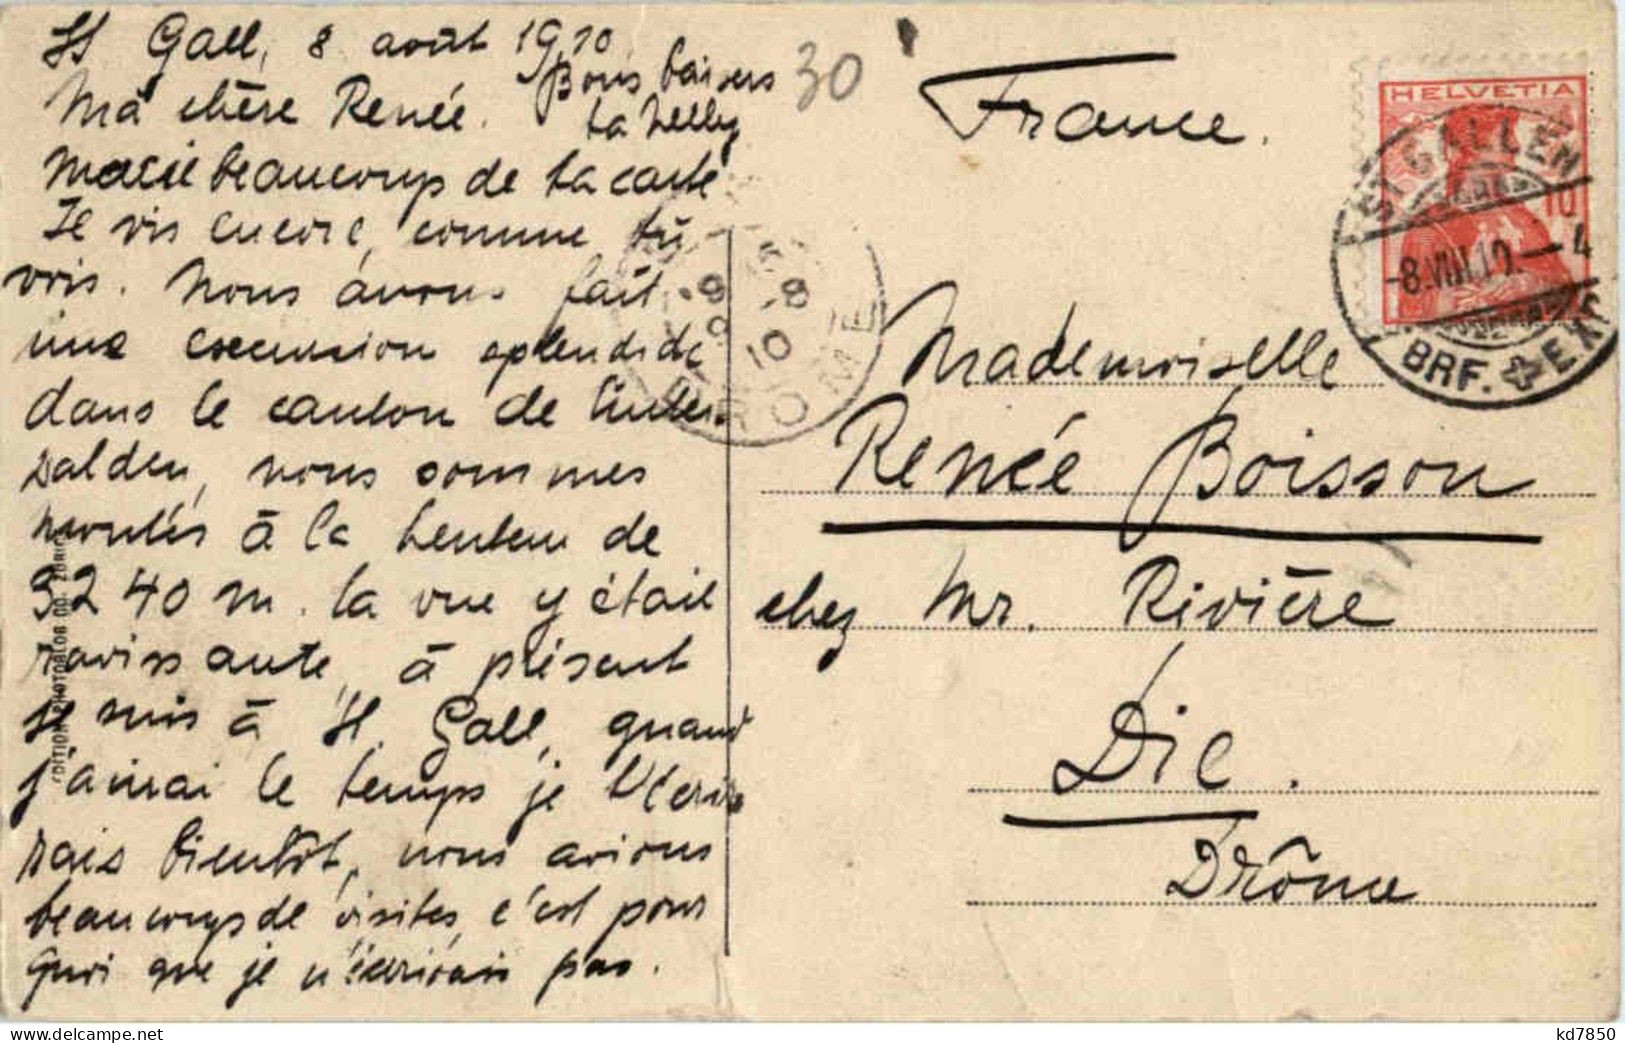 St Gall, 8 août 1910
Bons baisers
ta Nelly
30
Ma chère Renée.
Merci beaucoups de ta carte
Je vis encore, comme tu
vois. Nous avons fait
une excursion splendide
dans le canton de Unter-
walden, nous sommes
montés à la hauteur de
3240 m. la vue y était
ravissante, à présent
je suis à St. Gall, quand
j'aurai le temps je t'écrirai
bientôt, nous avions
beaucoups de visites, c'est pour
quoi que je n'écrivais pas.
France.
HELVETIA
10
ST. GALLEN
-8.VIII.10.-4
BRF. EXP.
DROME
Mademoiselle
Renée Boisson
chez Mr. Rivière
Die.
Drôme
EDITION PHOTOGLOB CO. ZÜRICH
kd7850